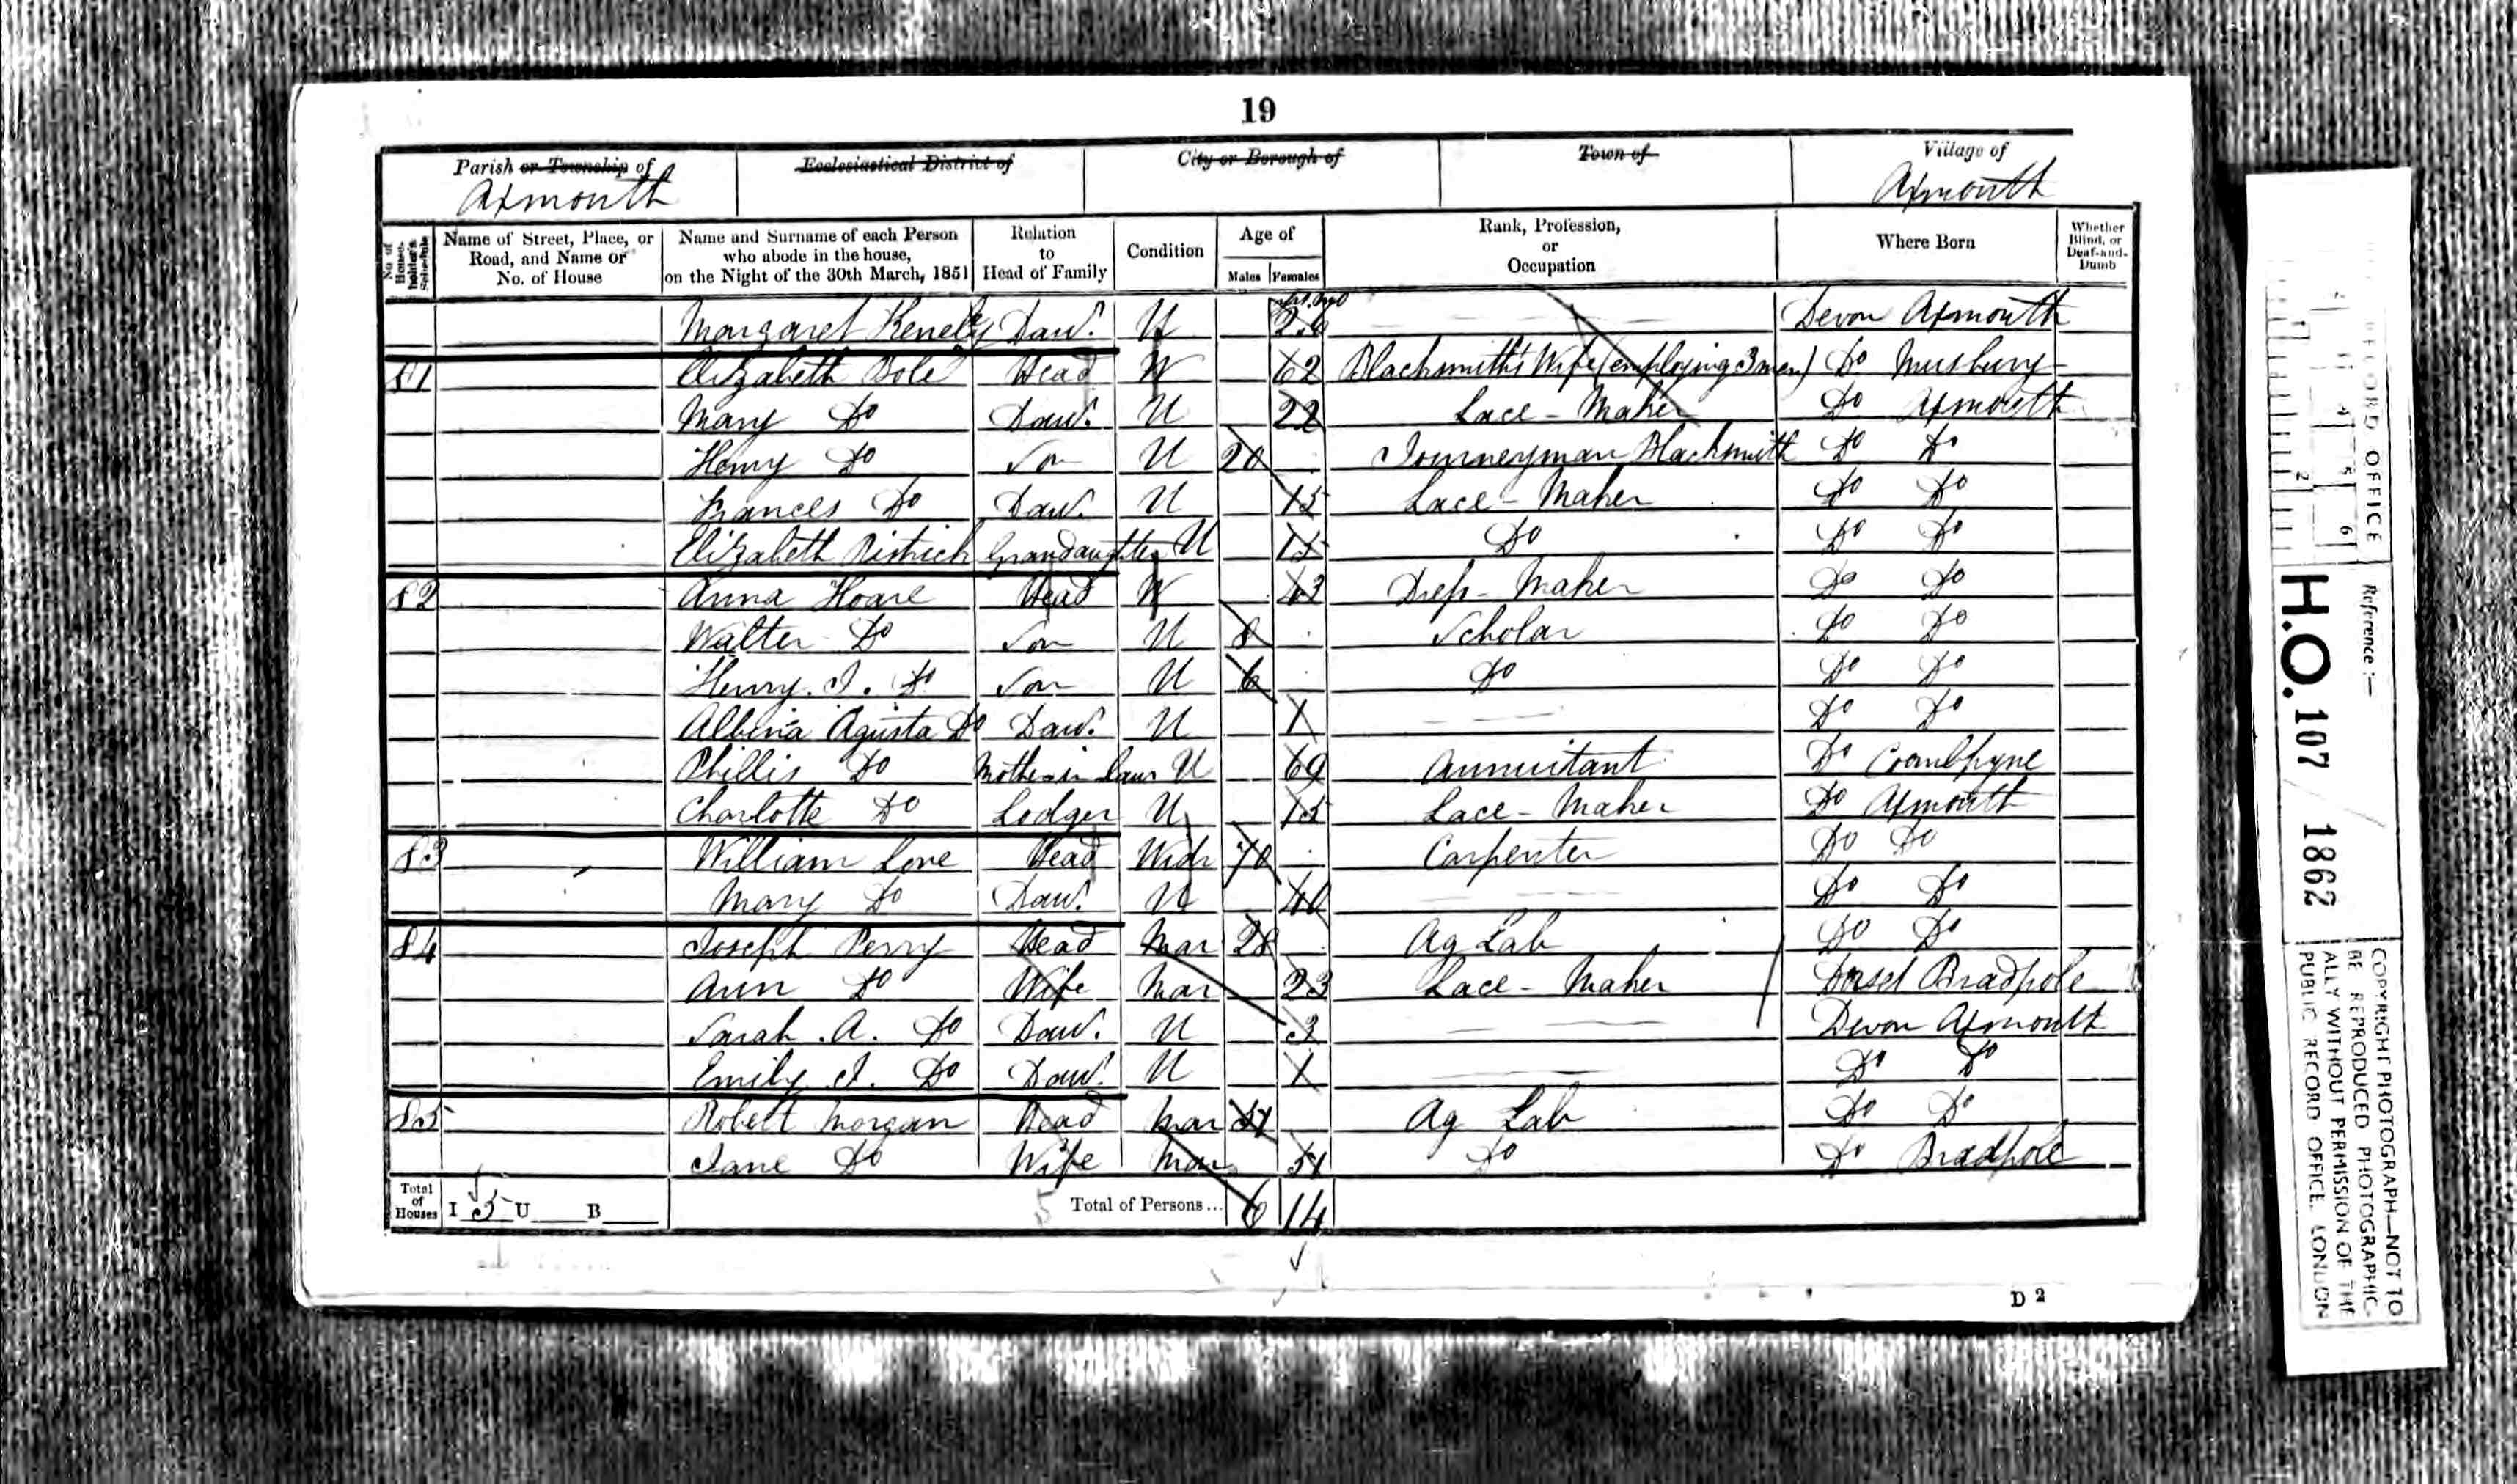 19
Parish or Township of Ecclesiastical District of City or Borough of Town of Village of
Axmouth Axmouth
No. of House-holder's Schedule Name of Street, Place, or Road, and Name or No. of House Name and Surname of each Person who abode in the house, on the Night of the 30th March, 1851 Relation to Head of Family Condition Age of Males Females Rank, Profession, or Occupation Where Born Whether Blind, or Deaf-and-Dumb
Margaret Daur. U Devon Axmouth
81 Elizabeth Head W 62 Blacksmith's Wife (employing 3 men) Do Musbury
Mary Do Daur. U 22 Lace-Maker Do Axmouth
Henry Do Son U 20 Journeyman Blacksmith Do Do
Frances Do Daur. U 15 Lace-Maker Do Do
Elizabeth Grandaughter U 15 Do Do Do
82 Anna Hoare Head W 43 Dress-Maker Do Do
Walter Do Son U 8 Scholar Do Do
Henry. J. Do Son U 6 Do Do Do
Albena Agusta Do Daur. U 1 Do Do
Phillis Do Mother in law U 69 Annuitant Do Combpyne
Charlotte Do Lodger U 15 Lace-Maker Do Axmouth
83 William Love Head Widr 70 Carpenter Do Do
Mary Do Daur. U 40 Do Do
84 Joseph Perry Head Mar 28 Ag Lab Do Do
Ann Do Wife Mar 23 Lace-Maker Dorset Bradpole
Sarah .A. Do Daur. U 3 Devon Axmouth
Emily .J. Do Daur. U 1 Do Do
85 Robert Morgan Head Mar 51 Ag Lab Do Do
Jane Do Wife Mar 51 Do Do Bradpole
Total of Houses I 5 U B Total of Persons... 6 14
D 2
RECORD OFFICE
Reference :—
H.O. 107 / 1862
COPYRIGHT PHOTOGRAPH—NOT TO
BE REPRODUCED PHOTOGRAPHIC-
ALLY WITHOUT PERMISSION OF THE
PUBLIC RECORD OFFICE, LONDON